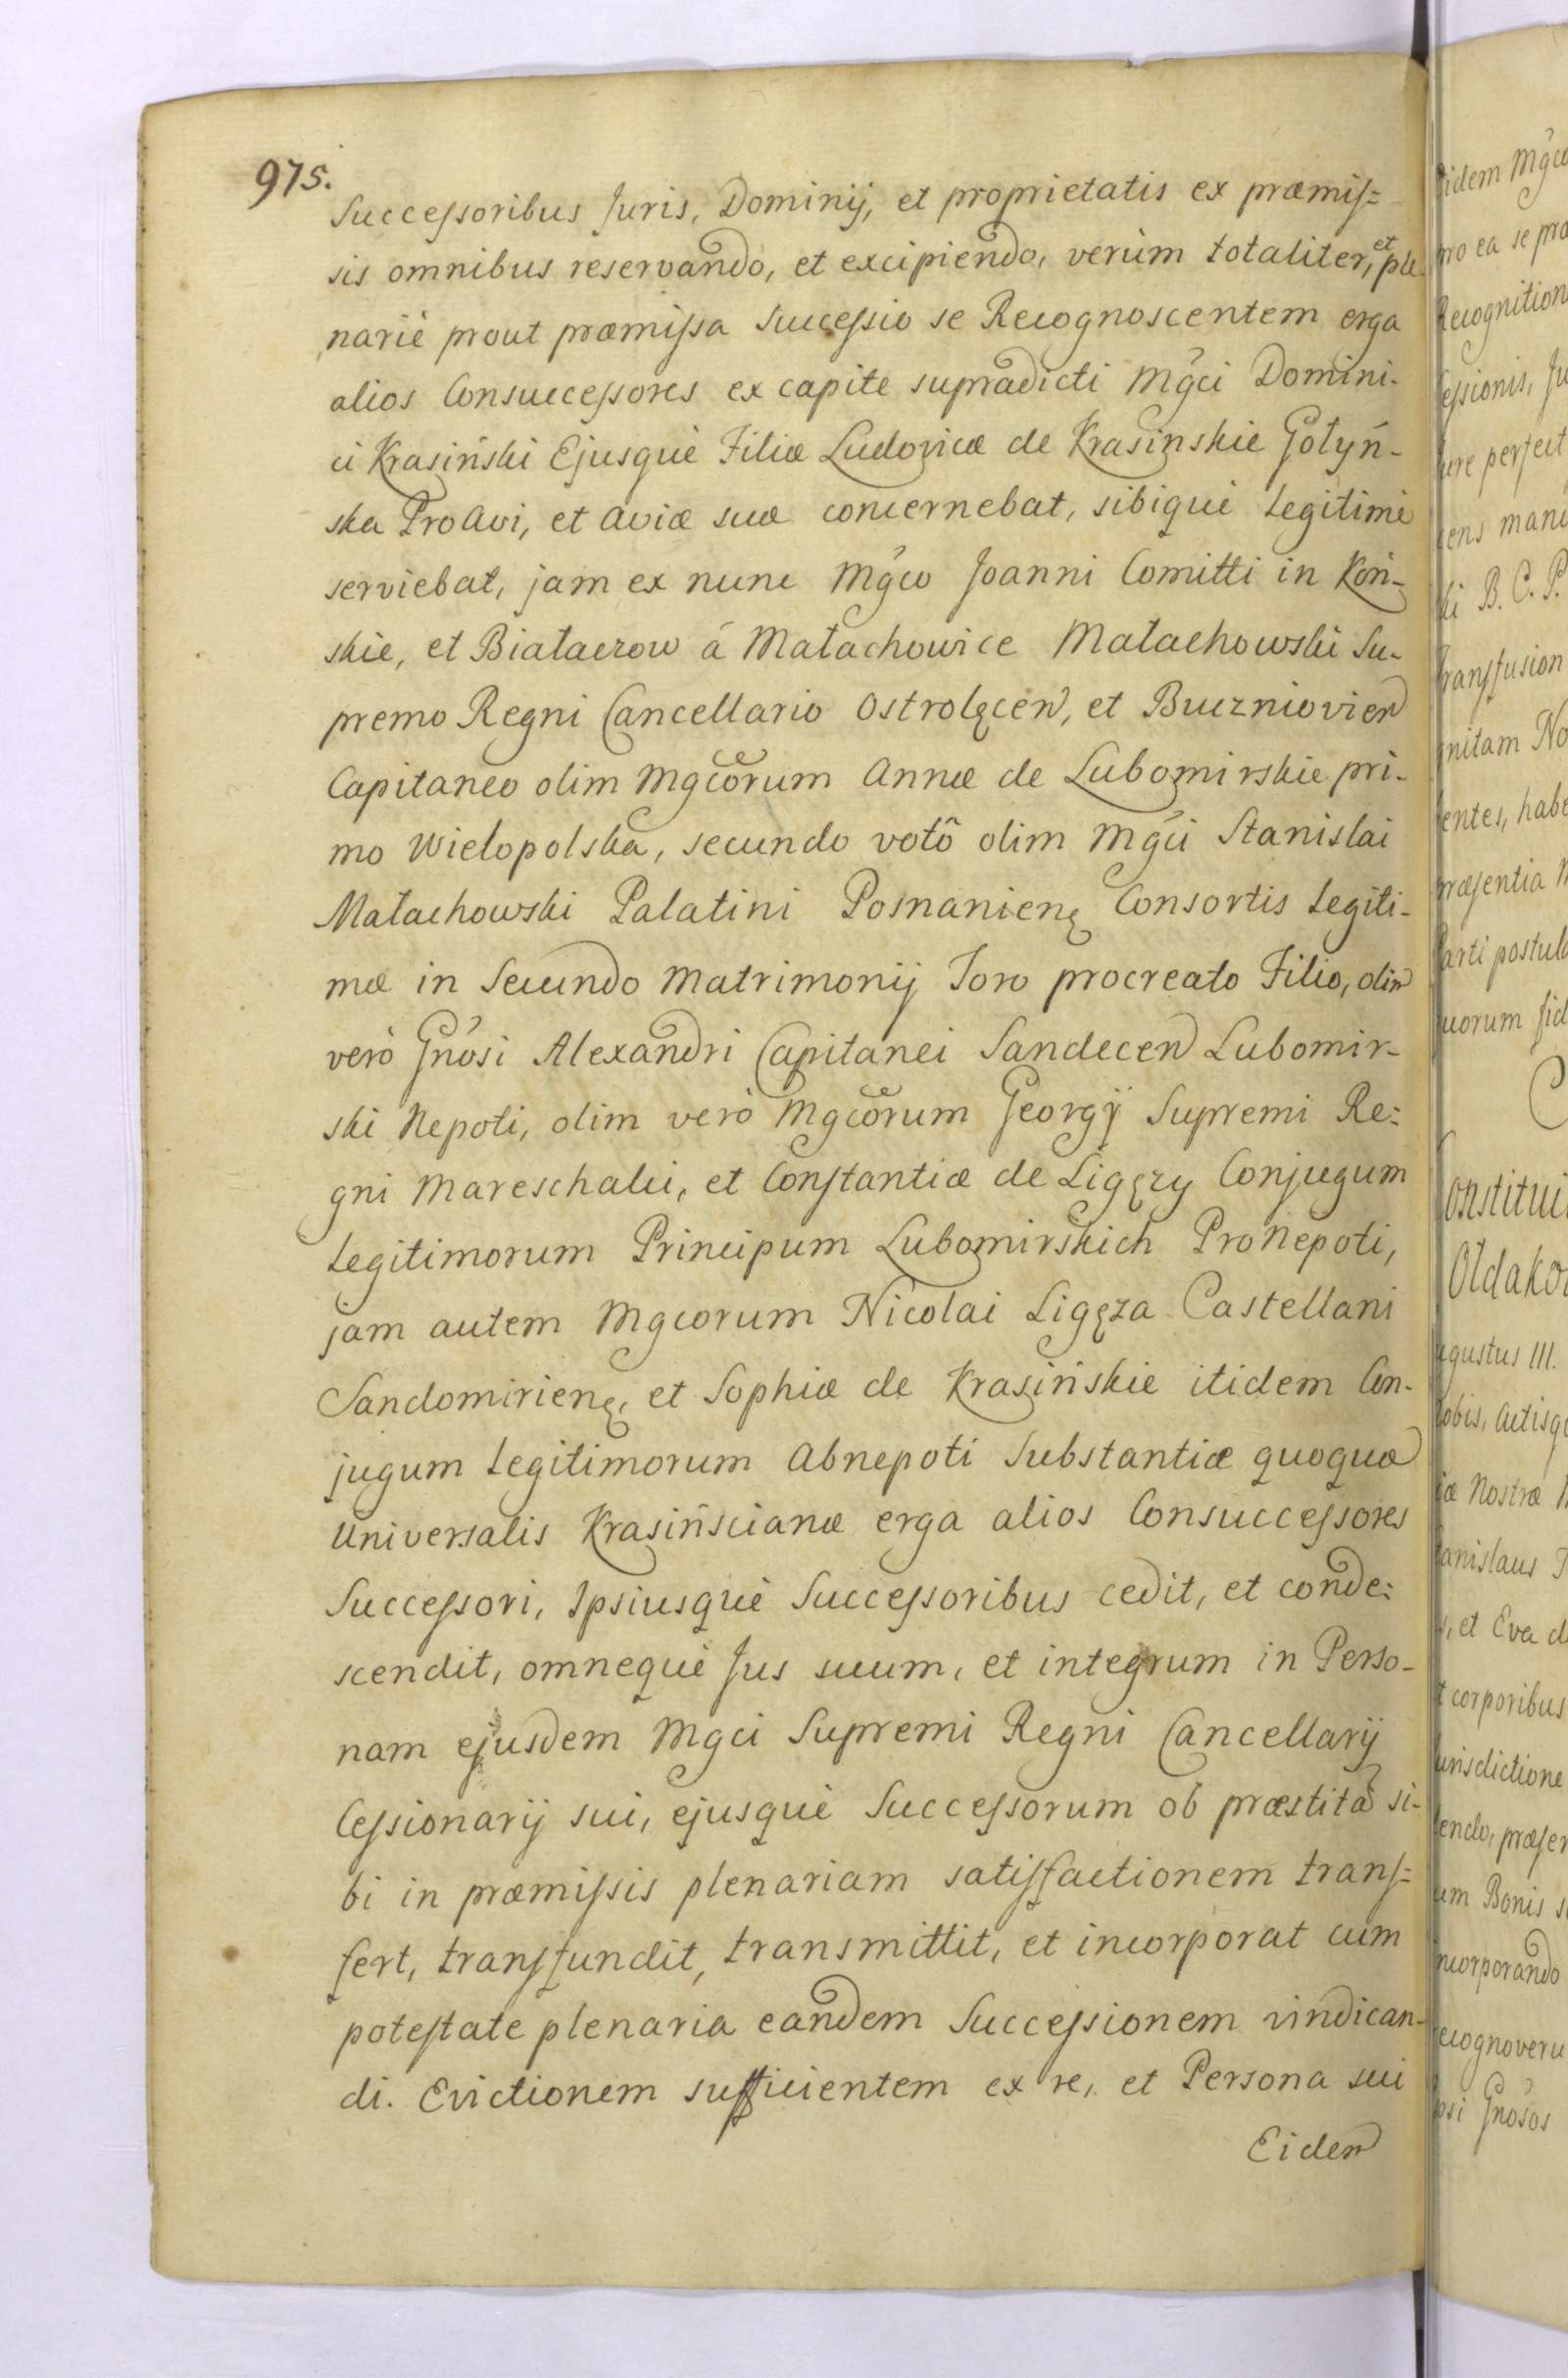 975.
Successoribus Juris, Dominij, et proprietatis ex præmis=
sis omnibus reservando, et excipiendo, verùm totaliter, et ple-
nariè prout præmissa Successio se Recognoscentem erga
alios Consuccessores ex capite supradicti Mgci Domini-
ci Krasiński Ejusquè Filiæ Ludovicæ de Krasinskie Gołyń-
ska ProAvi, et Aviæ suæ concernebat, sibiquè Legitimè
serviebat, jam ex nunc Mgco Joanni Comitti in Koń-
skie, et Białaczow á Małachowice Małachowski Su-
premo Regni Cancellario Ostrolęcen, et Buczniovien
Capitaneo olim Mgcorum Annæ de Lubomirskie pri-
mo Wielopolska, secundo votô olim Mgci Stanislai
Małachowski Palatini Posnanien Consortis Legiti-
mæ in Secundo Matrimonij Toro procreato Filio, olim
verò Gnosi Alexandri Capitanei Sandecen Lubomir-
ski Nepoti, olim verò Mgcorum Georgij Supremi Re=
gni Mareschalci, et Constantiæ de Ligęzy Conjugum
Legitimorum Principum Lubomirskich ProNepoti,
jam autem Mgcorum Nicolai Ligęza Castellani
Sandomirien, et Sophiæ de Krasińskie itidem Con-
jugum Legitimorum Abnepoti Substantiæ quoquæ
Universalis Krasińscianæ erga alios Consuccessores
Successori, Ipsiusquè Successoribus cedit, et conde=
scendit, omnequè Jus suum, et integrum in Perso-
nam ejusdem Mgci Supremi Regni Cancellarij
Cessionarij sui, ejusquè Successorum ob præstitã si-
bi in præmissis plenariam satisfactionem trans=
fert, transfundit, transmittit, et incorporat cum
potestate plenaria eandem Successionem vindican-
di. Evictionem sufficientem ex re, et Persona sui
Eidem